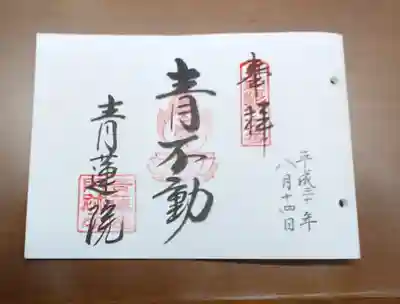 奉拝
平成三十年
八月十四日
青不動
青蓮院